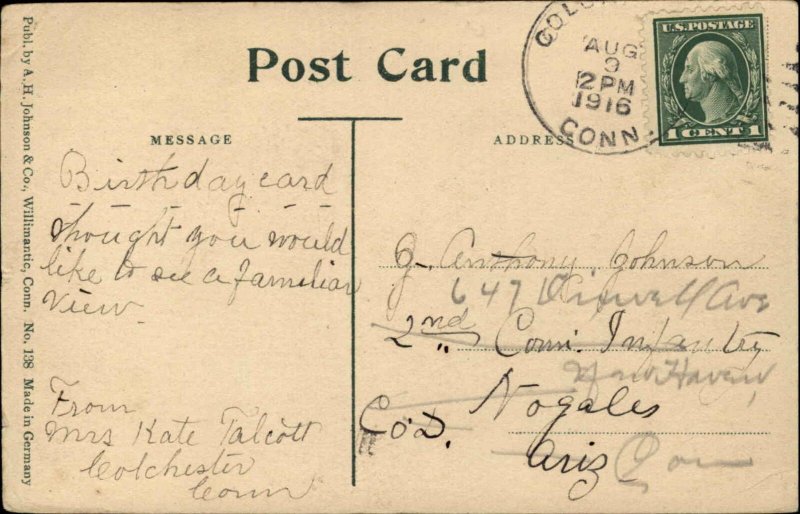 Publ. by A. H. Johnson & Co., Willimantic, Conn. No. 138 Made in Germany
Post Card
MESSAGE
ADDRESS
AUG
9
2 PM
1916
CONN
U.S. POSTAGE
1 CENT 1
Birthday card
thought you would
like to see a familiar
view.
From
Mrs Kate Talcott
Colchester
Conn
J. Anthony Johnson
647 Ave
2nd Conn. Infantry
New Haven,
Nogales
Co D.
Ariz Conn